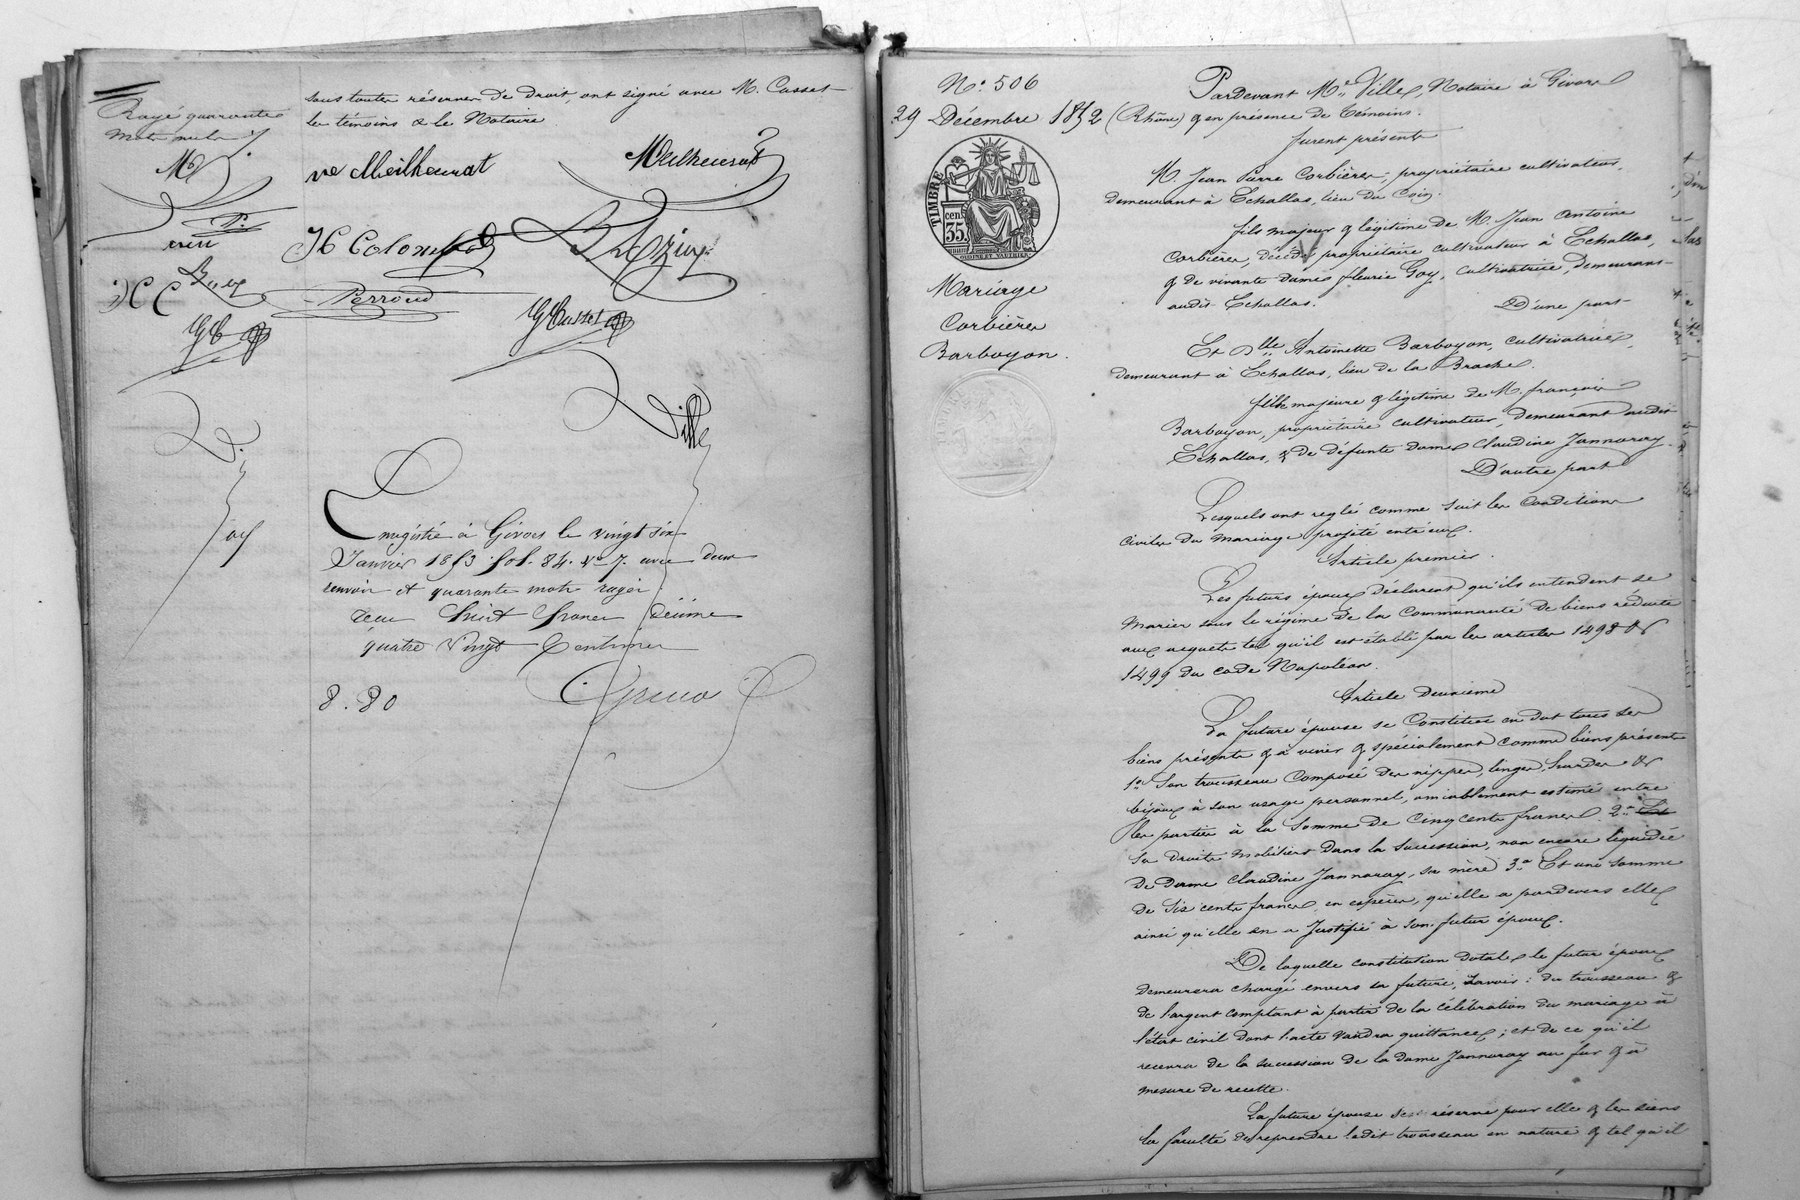 Rayé quarante
mots nuls
sous toutes réserves de droit, ont signé avec M. Cusset
les témoins & le Notaire
ve Meilheurat
Meilheurat
JC Colombet
Perroud
G Cusset
Ville
Enregistré à Givors le vingt six
Janvier 1853 fol. 84. vo 7. avec deux
renvois et quarante mots rayés
reçu huit francs décime
quatre vingt centimes
8.80
No 506
29 Décembre 1852
TIMBRE
35 cen.
Mariage
Corbière
Barboyon.
Pardevant Me Ville, Notaire à Givors
(Rhône) & en présence de témoins.
furent présents
M. Jean Pierre Corbière, propriétaire cultivateur,
demeurant à Echallas, lieu du Coin.
fils majeur & légitime de M. Jean Antoine
Corbière, décédé propriétaire cultivateur à Echallas,
& de vivante dame fleurie Goy, cultivatrice, demeurant
audit Echallas.
D'une part
Et Dlle Antoinette Barboyon, cultivatrice,
demeurant à Echallas, lieu de la
fille majeure & légitime de M. françois
Barboyon, propriétaire cultivateur, demeurant audit
Echallas, & de défunte dame Claudine Jannoray
D'autre part
Lesquels ont reglé comme suit les conditions
civiles du mariage projeté entr'eux.
Article premier.
Les futurs époux déclarent qu'ils entendent se
marier sous le régime de la communauté de biens réduite
aux acquets tel qu'il est établi par les articles 1498 &
1499 du code Napoléon.
Article deuxième
La future épouse se constitue en dot tous ses
biens présents & à venir & spécialement comme biens présents
1o Son trousseau composé des nippes, linges, hardes &
bijoux à son usage personnel, amiablement estimé entre
les parties à la somme de cinq cents francs. 2o
Ses droits mobiliers dans la succession, non encore liquidée
de dame Claudine Jannoray, sa mère 3o Et une somme
de six cents francs en espèces, qu'elle a pardevers elle
ainsi qu'elle en a justifié à son futur époux.
De laquelle constitution dotale le futur époux
demeurera chargé envers sa future, savoir: du trousseau &
de l'argent comptant à partir de la célébration du mariage à
l'état civil dont l'acte vaudra quittance; et de ce qu'il
recevra de la succession de la dame Jannoray au fur & à
mesure de recette.
La future épouse se réserve pour elle & les siens
la faculté de reprendre ledit trousseau en nature & tel qu'il